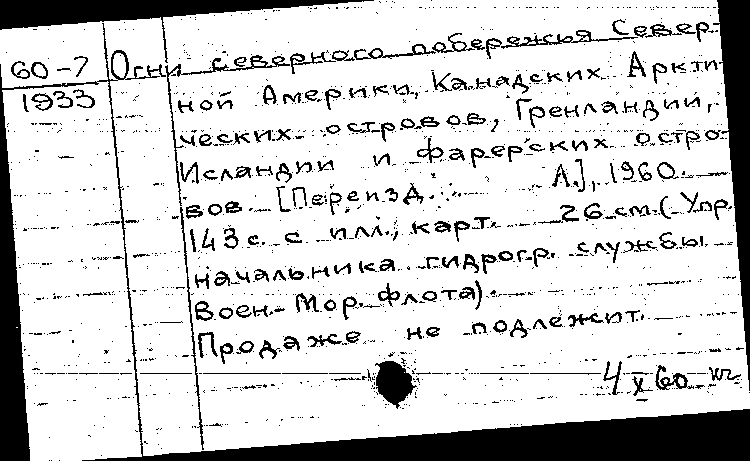 60-7 Огни северного побережья Север-
1933 ной Америки, Канадских Аркти-
ческих островов, Гренландии,
Исландии и фарерских остро-
вов. [Переизд. А.], 1960.
143 с. с илл., карт. 26 см. (Упр.
начальника гидрогр. службы
Воен.-Мор. флота).
Продаже не подлежит.
4 X 60